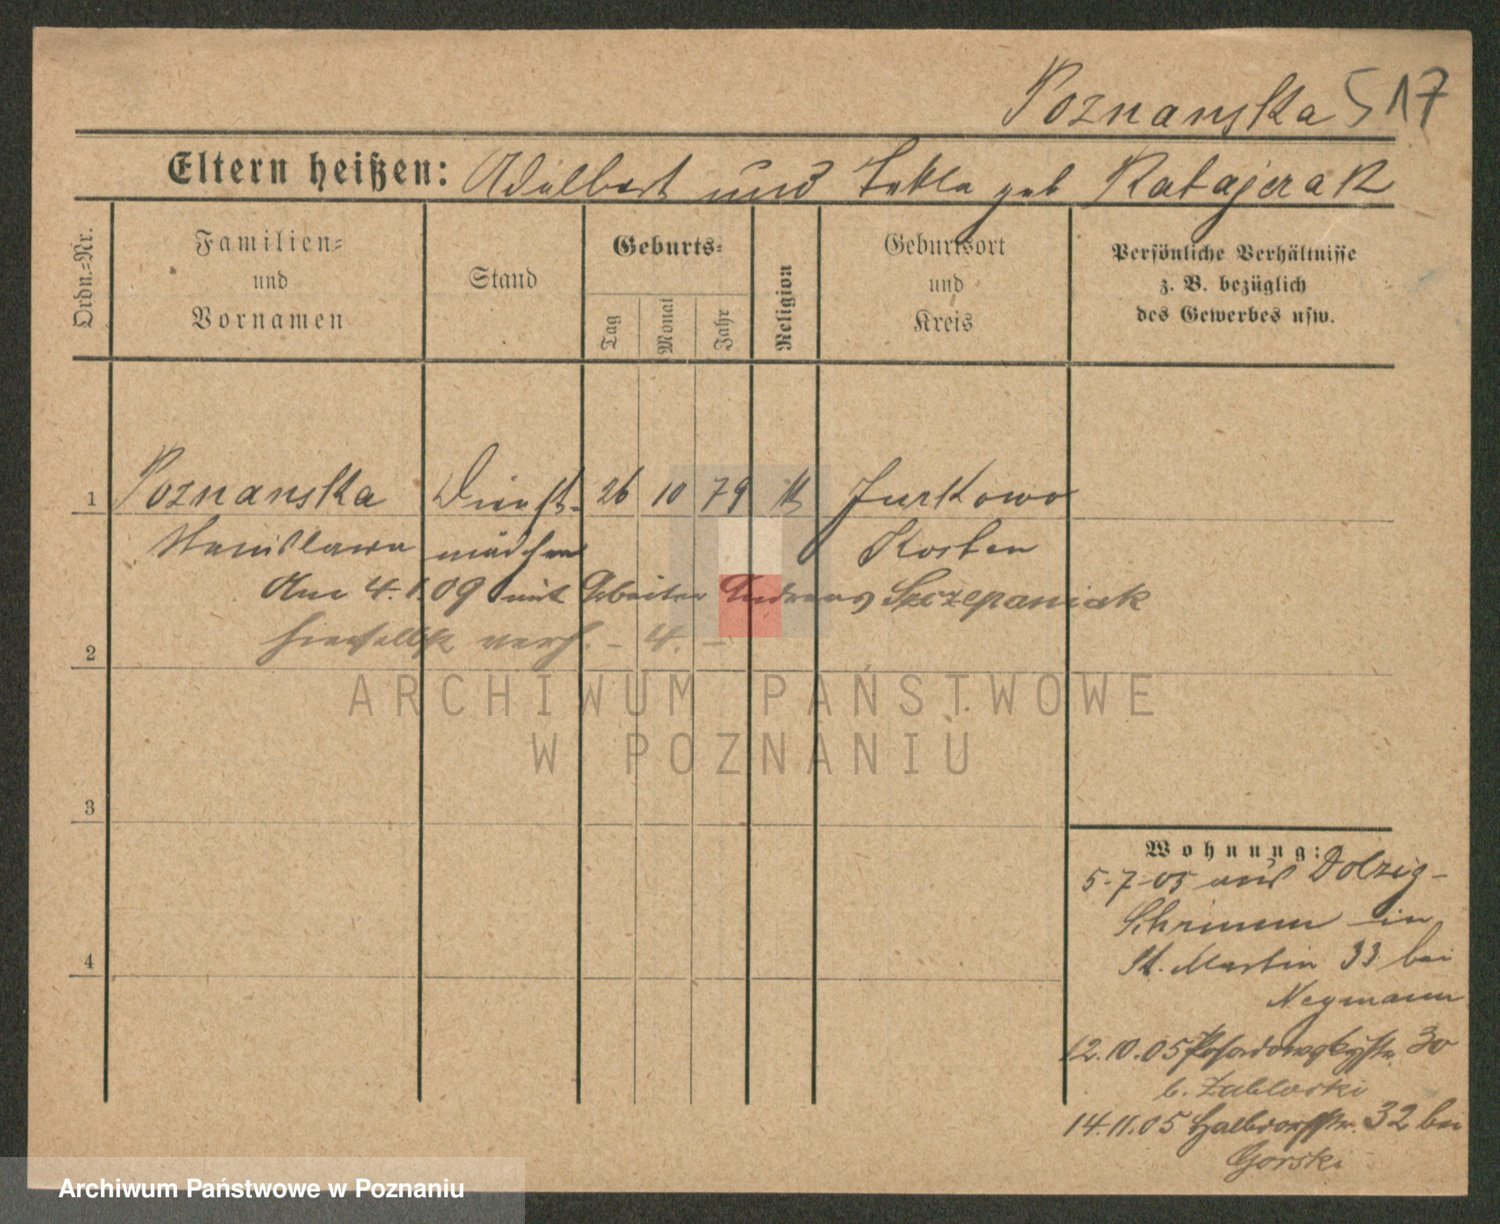 Poznanska 517
Eltern heißen: Adalbert und Tekla geb Ratajczak
Ordn.-Nr.
Familien-
und
Vornamen
Stand
Geburts-
Tag
Monat
Jahr
Religion
Geburtsort
und
Kreis
Persönliche Verhältnisse
z. B. bezüglich
des Gewerbes usw.
1 Poznanska Dienst- 26 10 79 k Jurkowo
Stanislawa mädchen Kosten
Am 4.1.09 mit Arbeiter Andreas Szczepaniak
hieselbst verh. – 4. –
2
3
4
Wohnung:
5-7-05 aus Dolzig-
Schrimm in
St. Martin 33 bei
Neymann
12.10.05 Posadowskystr. 30
b. Zablocki
14.11.05 Halbdorfstr. 32 bei
Gorski
ARCHIWUM PAŃSTWOWE
W POZNANIU
Archiwum Państwowe w Poznaniu